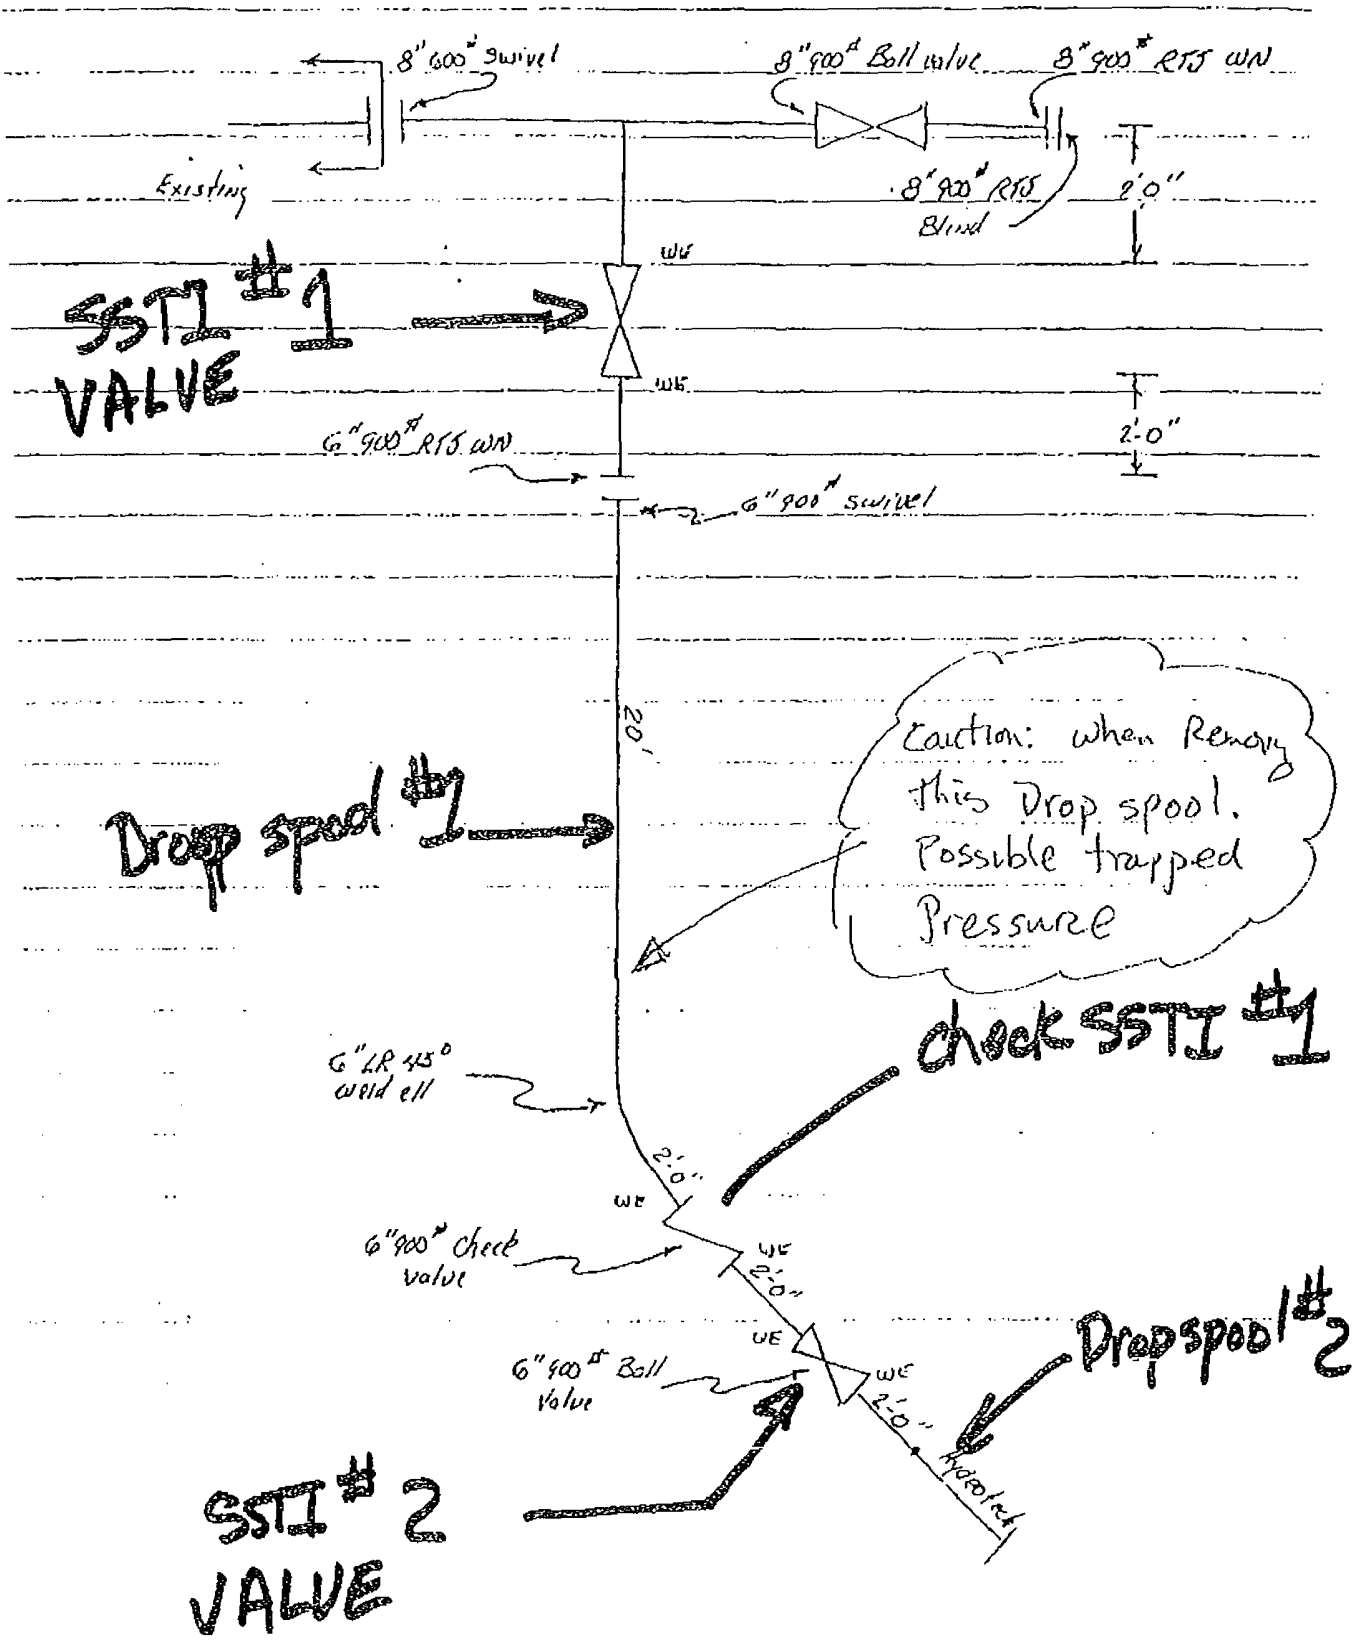 8" 600# Swivel
8" 900# Ball valve
8" 900# RTJ WN
Existing
8" 900# RTJ
Blind
2'-0"
WE
SSTI #1
VALVE
WE
2'-0"
6" 900# RTJ WN
6" 900# swivel
20'
Caution: when Removing
this Drop spool.
Possible trapped
Pressure
Drop spool #1
check SSTI #1
6" LR 45°
weld ell
2'-0"
WE
6" 900# Check
valve
WE
2'-0"
Dropspool #2
WE
6" 900# Ball
Valve
WE
2'-0"
Hydrotech
SSTI #2
VALVE